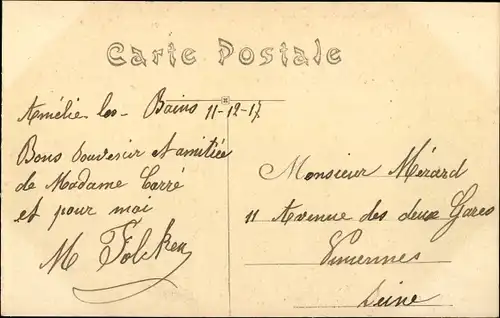 Carte Postale
Amélie les-Bains 11-12-17
Bons Souvenir et amitiée
de Madame Carré
et pour moi
M Folcker
Monsieur Mérard
11 Avenue des deux Gares
Vincennes
Seine